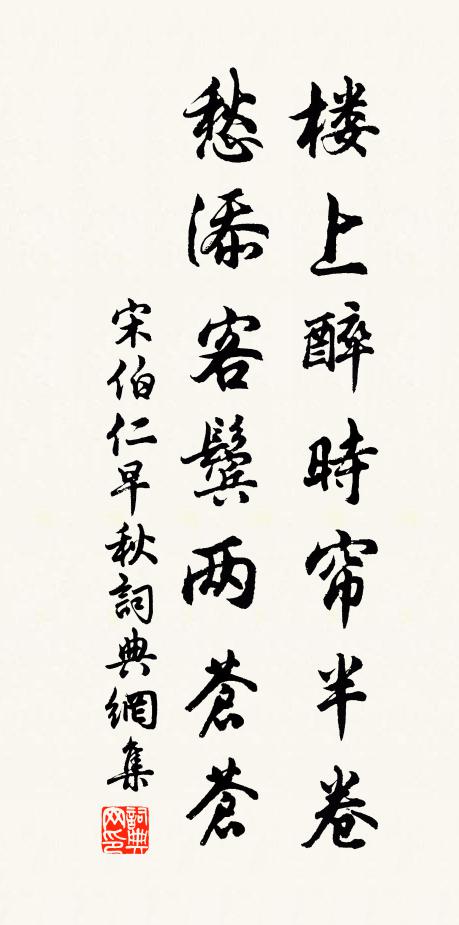 楼上醉時帘半卷
愁添客鬓两蒼蒼
宋伯仁早秋詞典網集
詞典网印